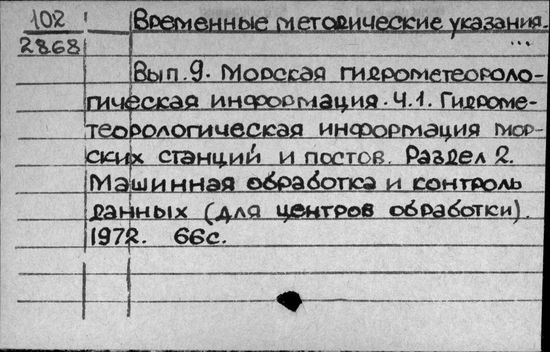 102 Временные методические указания.
2868 ...
Вып.9. Морская гидрометеороло-
гическая информация. Ч.1. Гидроме-
теорологическая информация мор-
ских станций и постов. Раздел 2.
Машинная обработка и контроль
данных (для центров обработки).
1972. 66с.